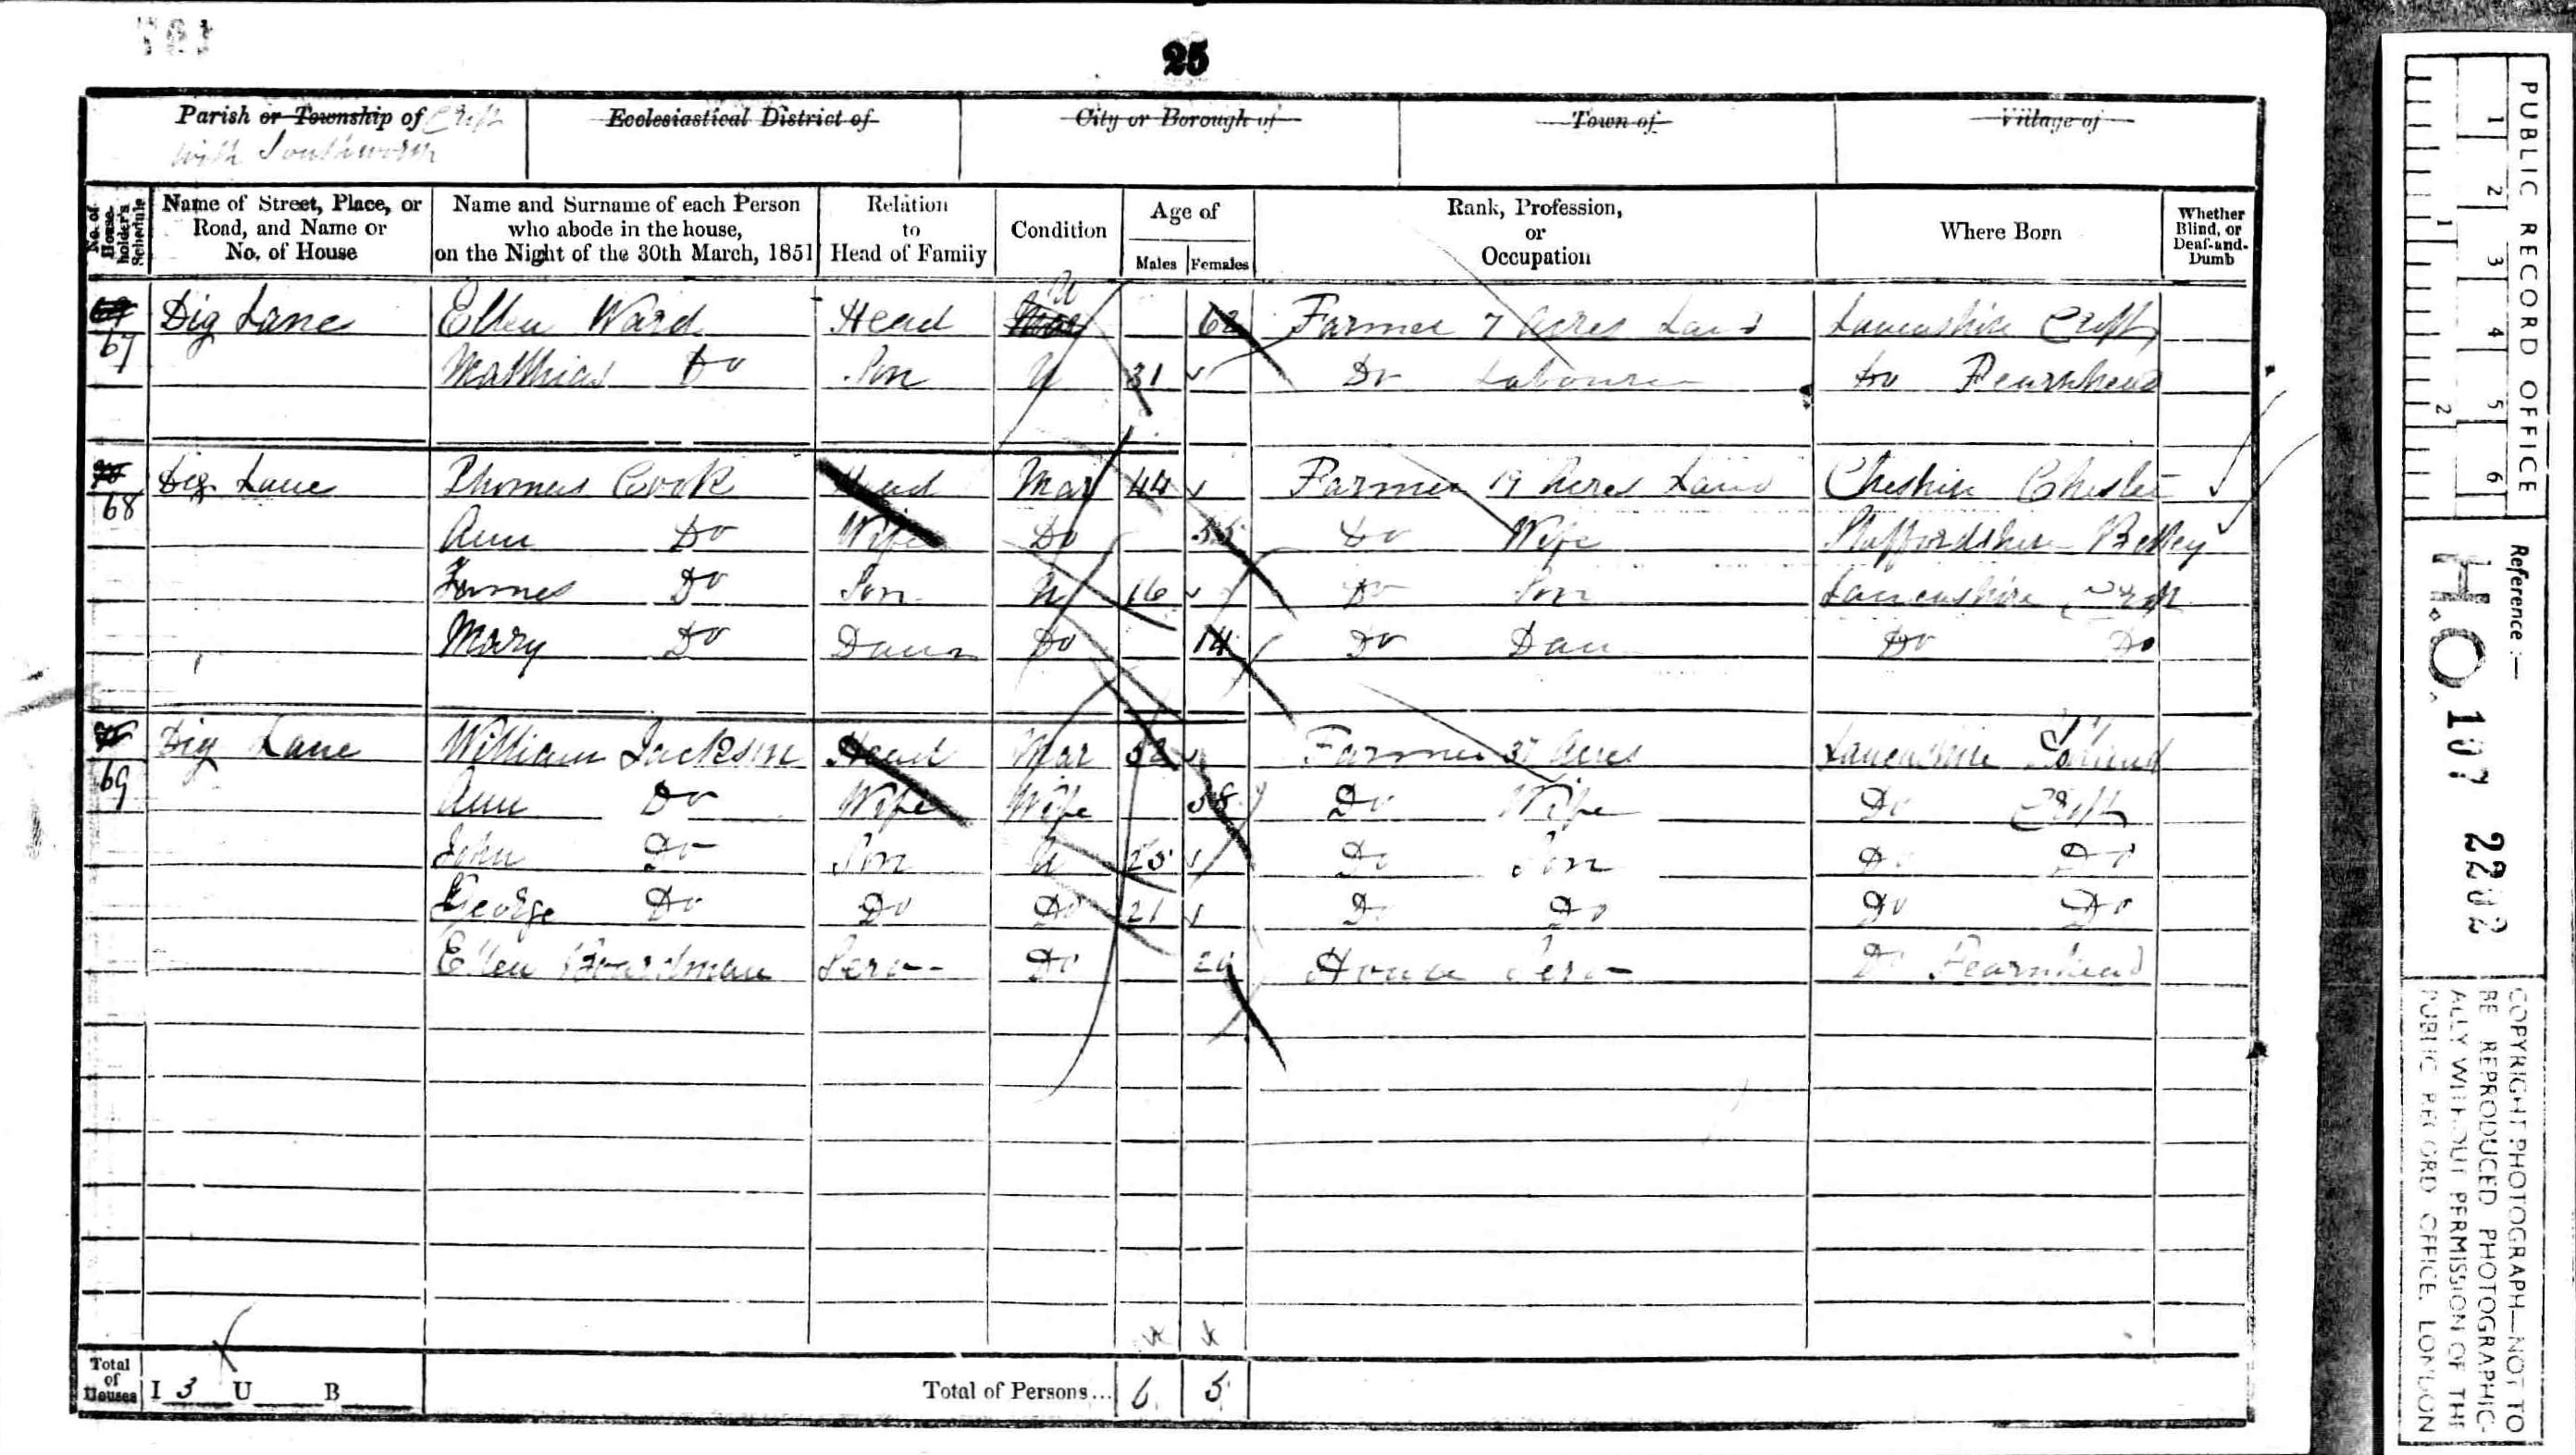 25
Parish or Township of Croft
with Southworth
Ecclesiastical District of
City or Borough of
Town of
Village of
No. of House-holder's Schedule
Name of Street, Place, or Road, and Name or No. of House
Name and Surname of each Person who abode in the house, on the Night of the 30th March, 1851
Relation to Head of Family
Condition
Age of
Males Females
Rank, Profession, or Occupation
Where Born
Whether Blind, or Deaf-and-Dumb
67 Dig Lane Ellen Ward Head U 62 Farmer 7 Acres Land Lancashire Croft
Matthias Do Son U 31 Do Labourer Do Fearnhead
68 Dig Lane Thomas Cook Head Mar 44 Farmer 19 Acres Land Cheshire Chester
Ann Do Wife Do 55 Do Wife Staffordshire Betley
James Do Son U 16 Do Son Lancashire Croft
Mary Do Daur Do 14 Do Dau Do Do
69 Dig Lane William Jackson Head Mar 52 Farmer 37 Acres Lancashire
Ann Do Wife Wife 58 Do Wife Do Croft
John Do Son U 25 Do Son Do Do
George Do Do Do 21 Do Do Do Do
Ellen Boardman Serv Do House Serv Do Fearnhead
Total of Houses I 3 U B
Total of Persons... 6 5
PUBLIC RECORD OFFICE
1 2 3 4 5 6
1 2
Reference :-
H.O. 107 2202
COPYRIGHT PHOTOGRAPH—NOT TO
BE REPRODUCED PHOTOGRAPHIC-
ALLY WITHOUT PERMISSION OF THE
PUBLIC RECORD OFFICE, LONDON